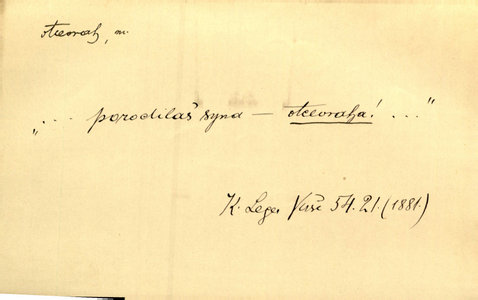 otcovrah, m.
„... porodilaš syna — otcovraha! ..."
K. Leger Vůše 54.21.(1881.)